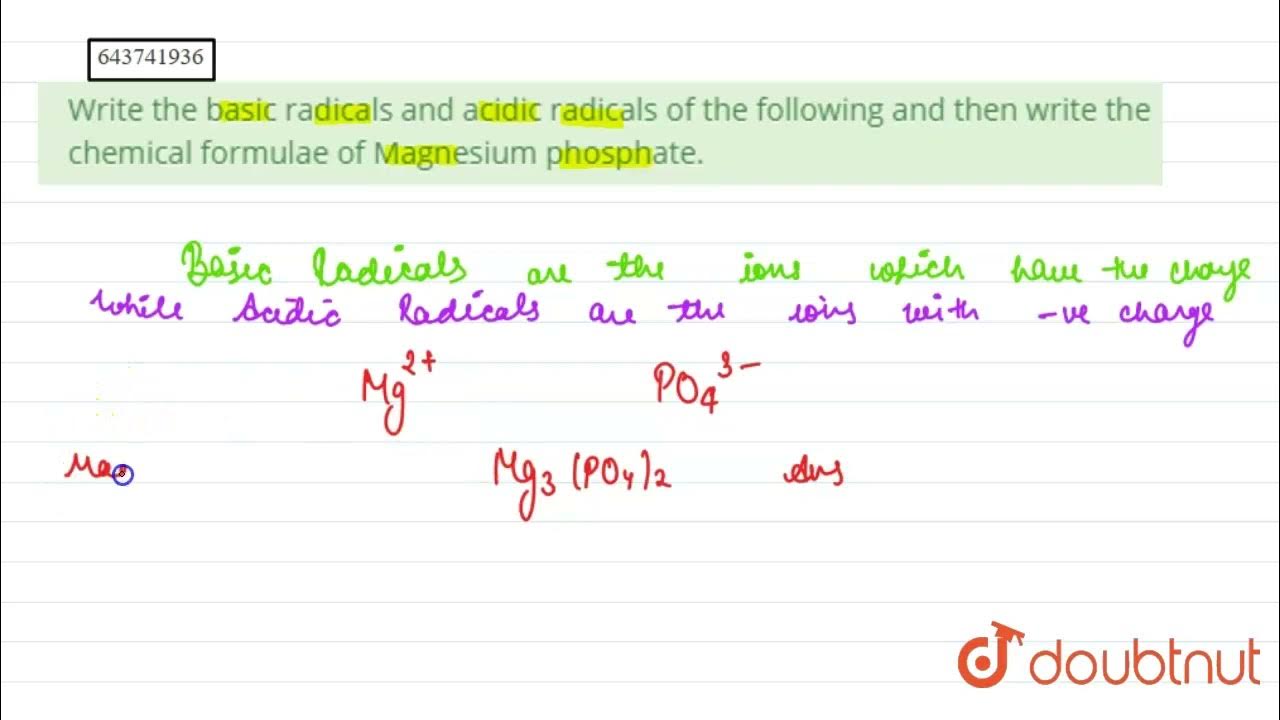 643741936
Write the basic radicals and acidic radicals of the following and then write the
chemical formulae of Magnesium phosphate.
Basic Radicals are the ions which have +ve charge
while Acidic Radicals are the ions with -ve charge
Mg²⁺ PO₄³⁻
Ma Mg₃(PO₄)₂ Ans
doubtnut